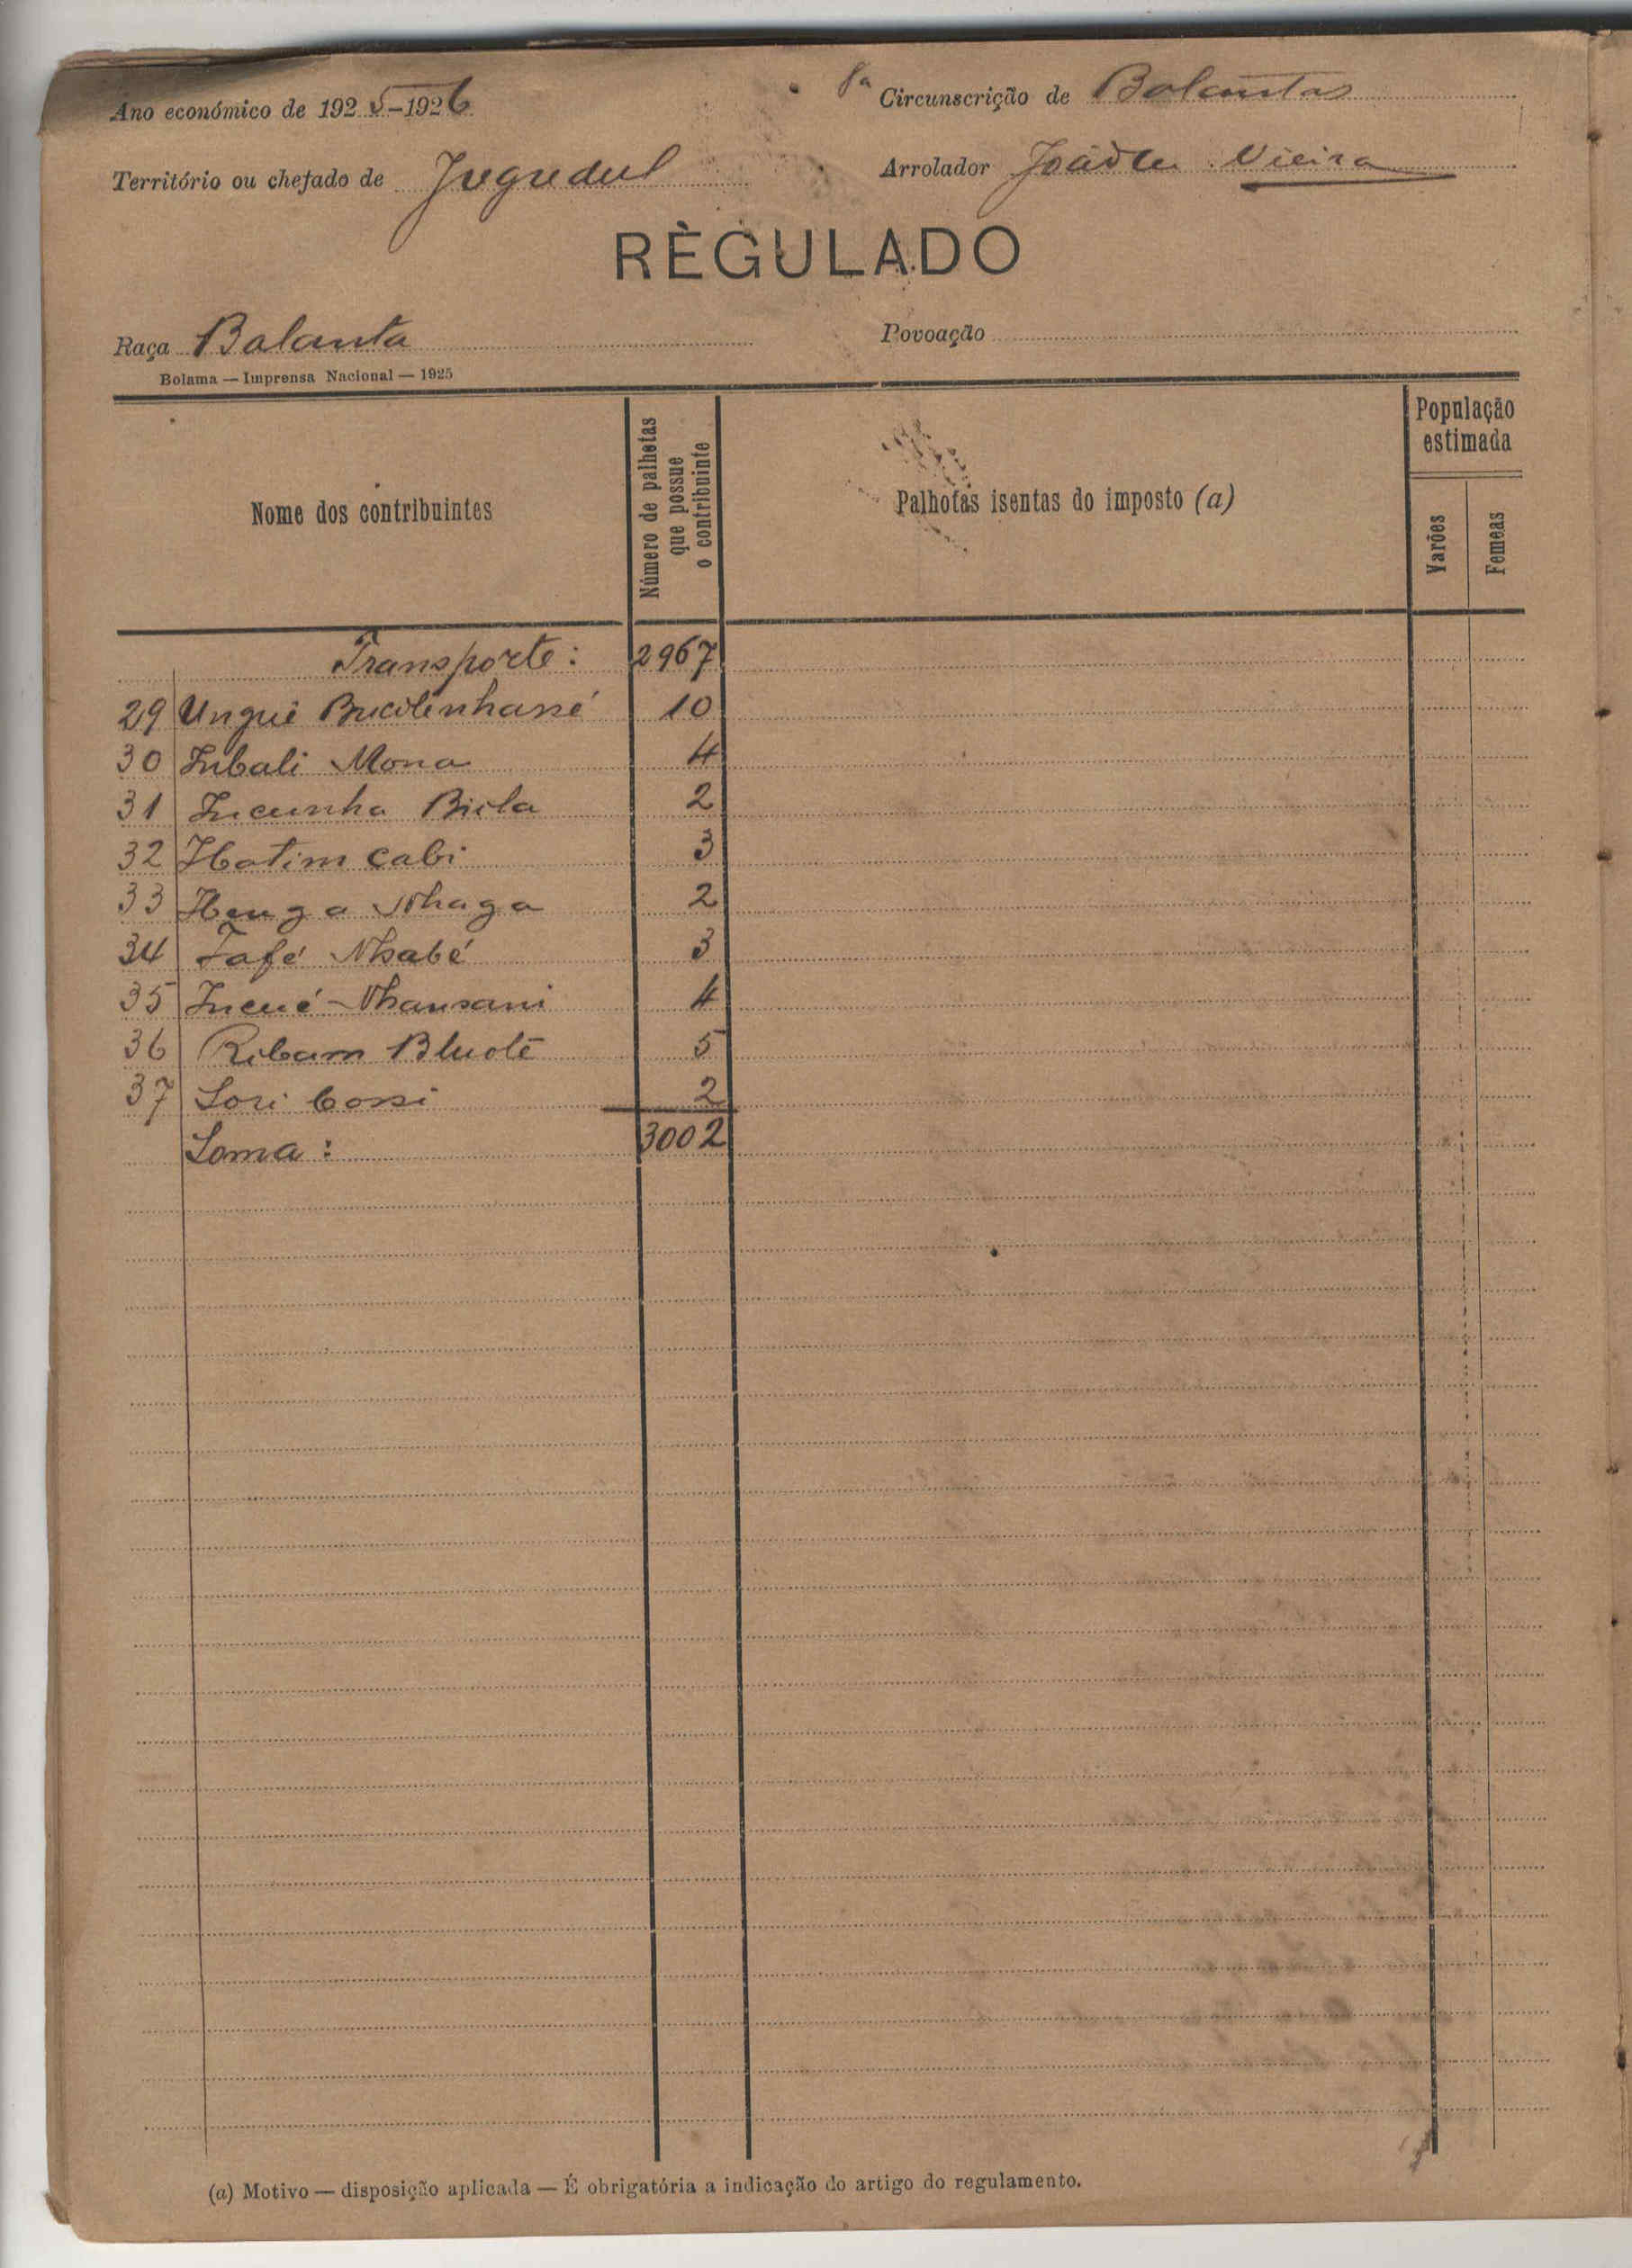 Ano económico de 1925-1926
8ª Circunscrição de Balantas
Território ou chefado de Jugudul
Arrolador João Vieira
RÈGULADO
Raça Balanta
Povoação
Bolama — Imprensa Nacional — 1925
Nome dos contribuintes
Número de palhotas que possue o contribuinte
Palhotas isentas do imposto (a)
População estimada
Varões
Femeas
Transporte: 2967
29 Ungué 10
30 Inbali Mona 4
31 Incunha Biela 2
32 Hbatim Cabi 3
33 Nhaga 2
34 Tafé Nhabé 3
35 Incué Nhansani 4
36 Ribam Bluoté 5
37 Sori Cossi 2
Soma: 3002
(a) Motivo — disposição aplicada — É obrigatória a indicação do artigo do regulamento.